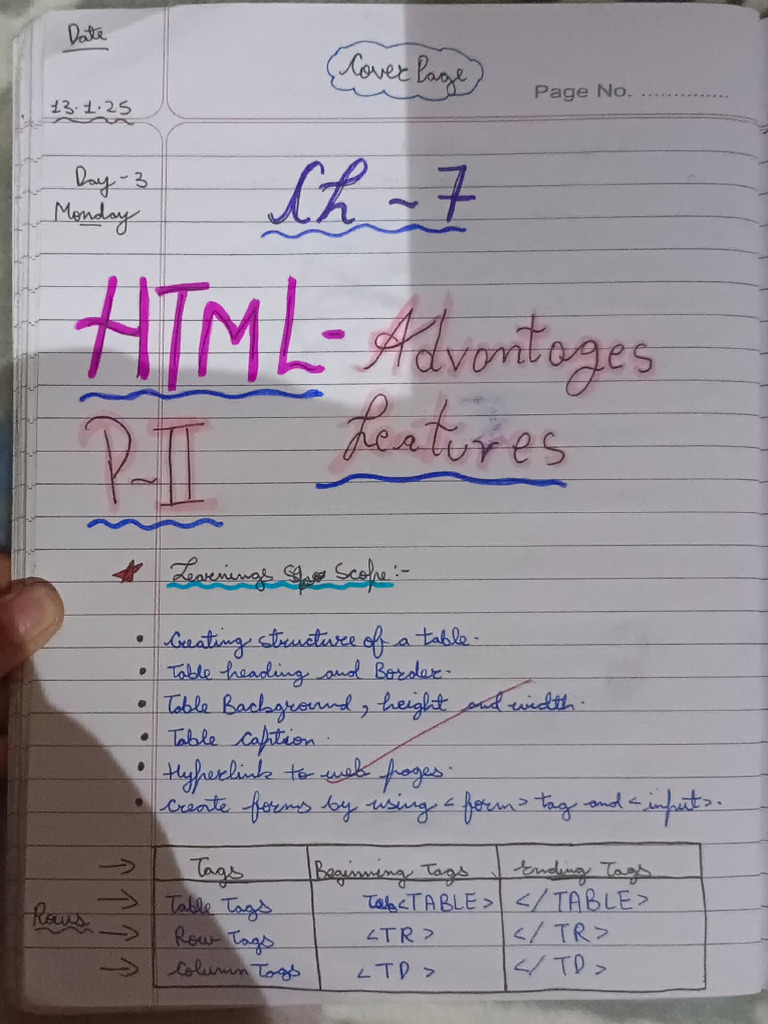 Date
Cover Page
Page No. ..............
13.1.25
Day-3
Monday
Ch ~ 7
HTML- Advantages
P-II Features
Learnings Scope:-
• Creating structure of a table.
• Table heading and Border.
• Table Background, height and width.
• Table caption.
• Hyperlink to web pages.
• Create forms by using <form> tag and <input>.
→ Tags Beginning Tags Ending Tags
Rows
→ Table Tags <TABLE> </TABLE>
→ Row Tags <TR> </TR>
→ Column Tags <TD> </TD>